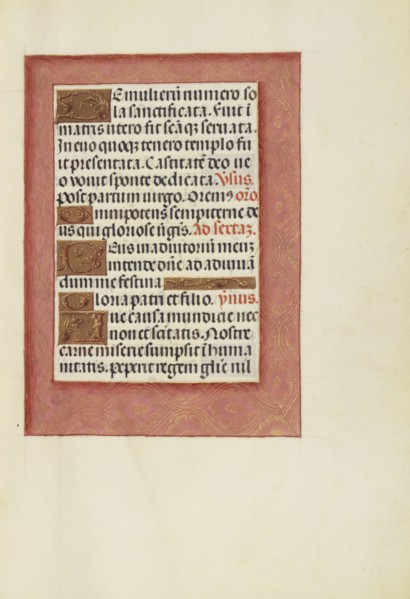 Emulierū numero so
la sanctificata. Fuit ī
matris utero fit scā qz seruata.
In euo quoqz tenero templo fu
it presentata. Castitatē deo ue
o vouit sponte dedicata. Vsus.
post partum uirgo. Oremꝰ oro.
Omnipotens sempiterne de
us qui gloriose ūgīs. Ad sextaz.
Deus in adiutoriū meuz
intende dn̄e ad adiuuā
dum me festina.
Gloria patri et filio. ymus.
ne causa mundicie nec
non et scītatis. Nostre
carne miserie sumpsit ī huma
nitatis. peperit regem glīe nil